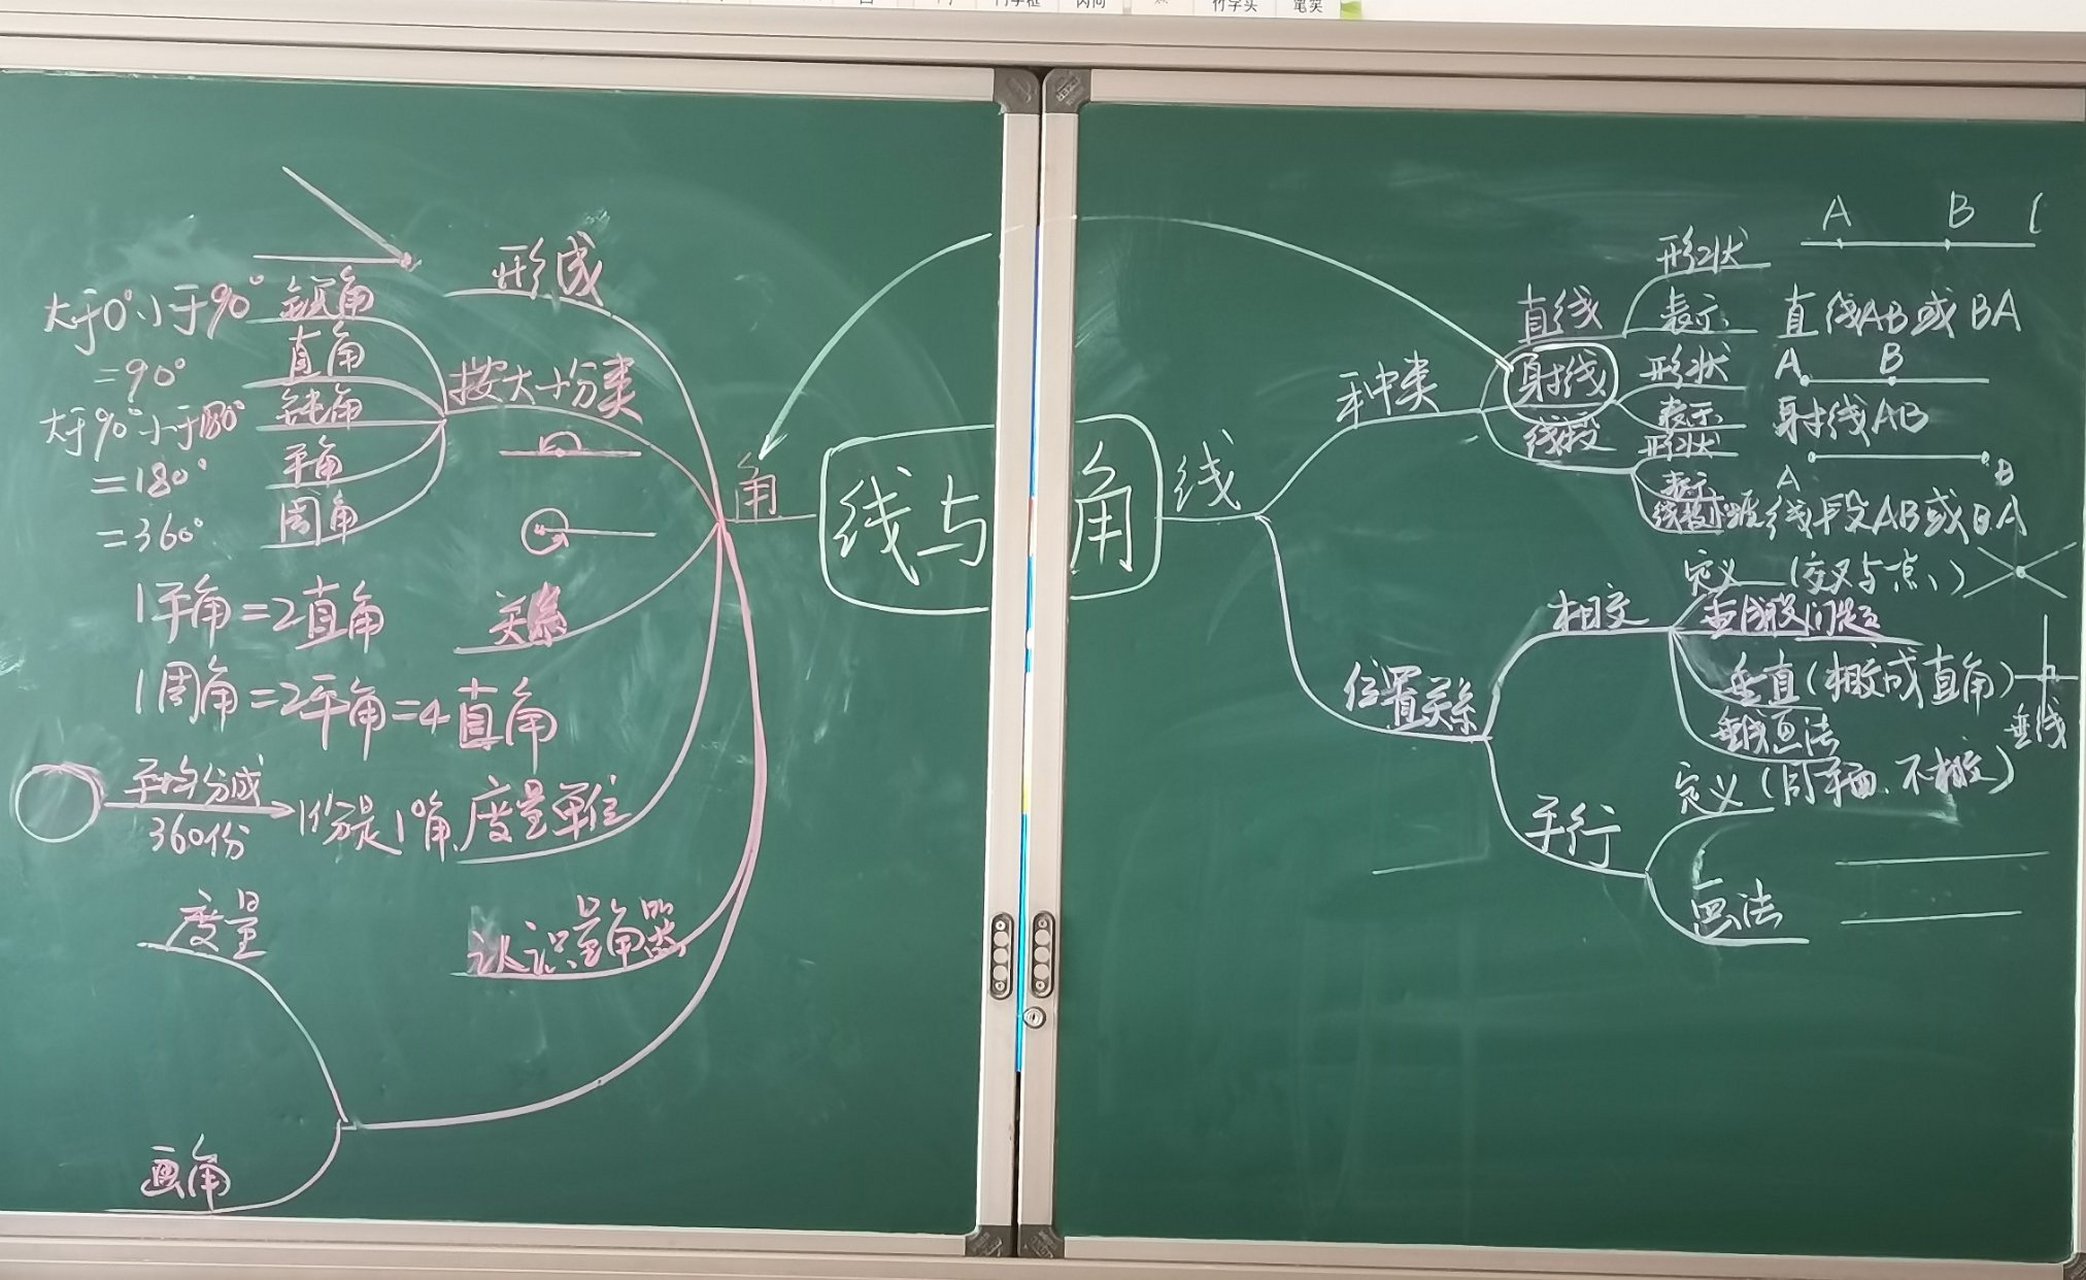 竹字头
笔尖
形成
大于0°小于90°
锐角
=90°
直角
按大小分类
大于90°小于180°
钝角
=180°
平角
=360°
周角
角
1平角=2直角
关系
1周角=2平角=4直角
平均分成
360份
1份是1°角
度量单位
度量
认识量角器
画角
线与角
线
种类
直线
形状
A B l
表示
直线AB或BA
射线
形状
A B
表示
射线AB
线段
形状
A B
表示
线段AB或BA
位置关系
相交
定义(交叉与一点)
垂直(相交成直角)
垂线
垂线画法
平行
定义(同平面、不相交)
画法